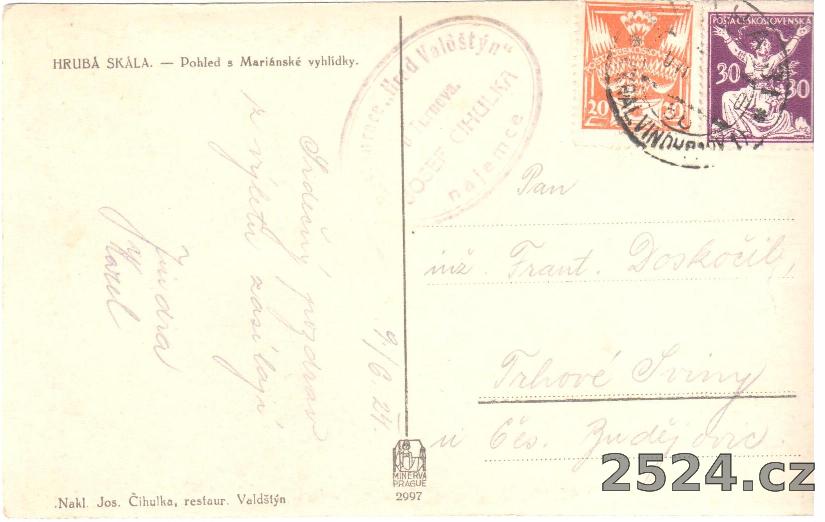 HRUBÁ SKÁLA. — Pohled s Mariánské vyhlídky.
„Hrad Valdštýn“
z Turnova.
JOSEF ČIHULKA
nájemce
POŠTA ČESKOSLOVENSKÁ
20
POŠTA ČESKOSLOVENSKÁ
30 30
KRÁL. VINOHRADY
Srdečný pozdrav
z výletu zasílají
Jindra
Karel
9/6. 24.
Pan
inž. Frant. Doskočil,
Trhové Sviny
u Čes. Budějovic.
MINERVA
PRAGUE
2997
Nakl. Jos. Čihulka, restaur. Valdštýn
2524.cz